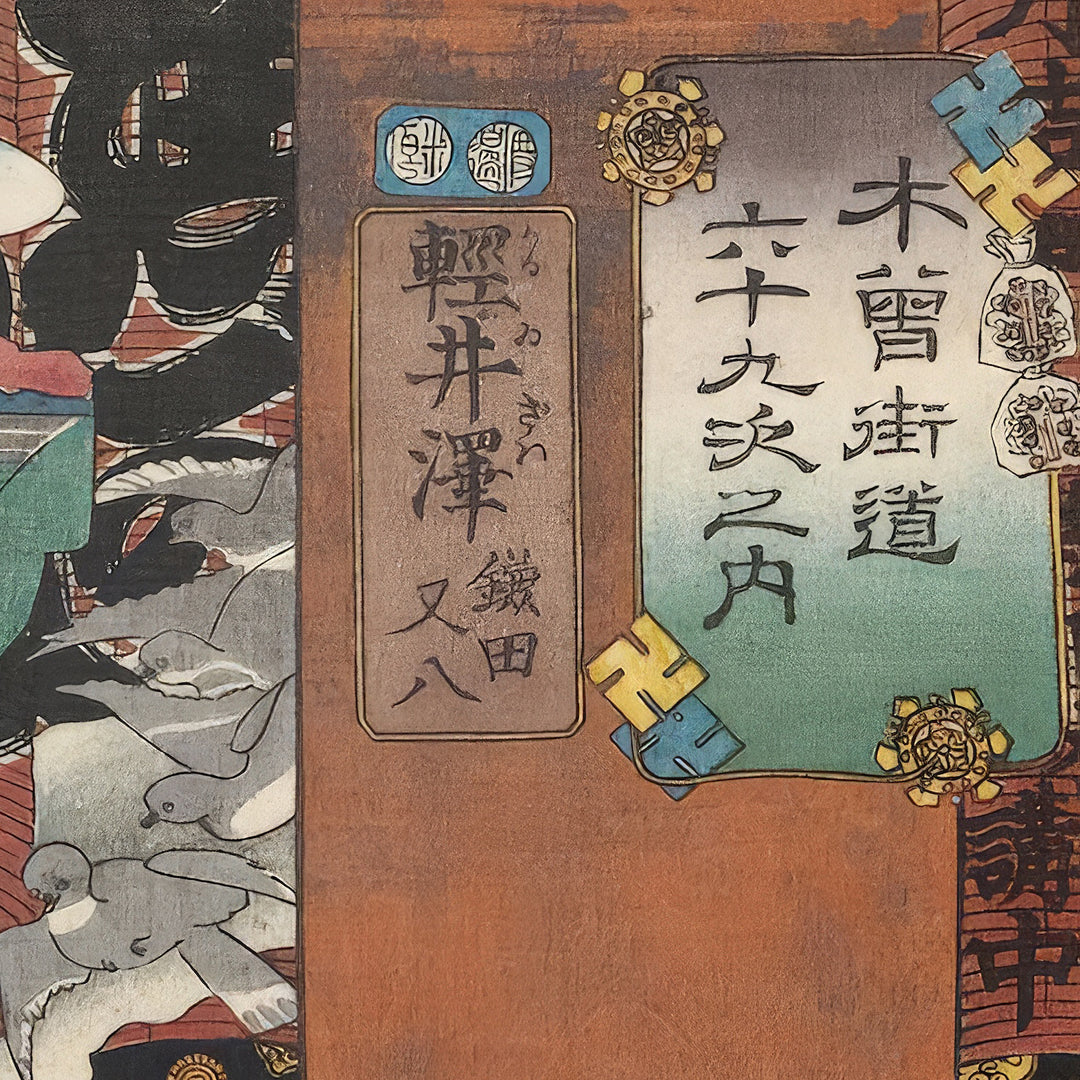 木曾街道
六十九次之内
輕井澤
かるゐざは
鎌田
又八
講中